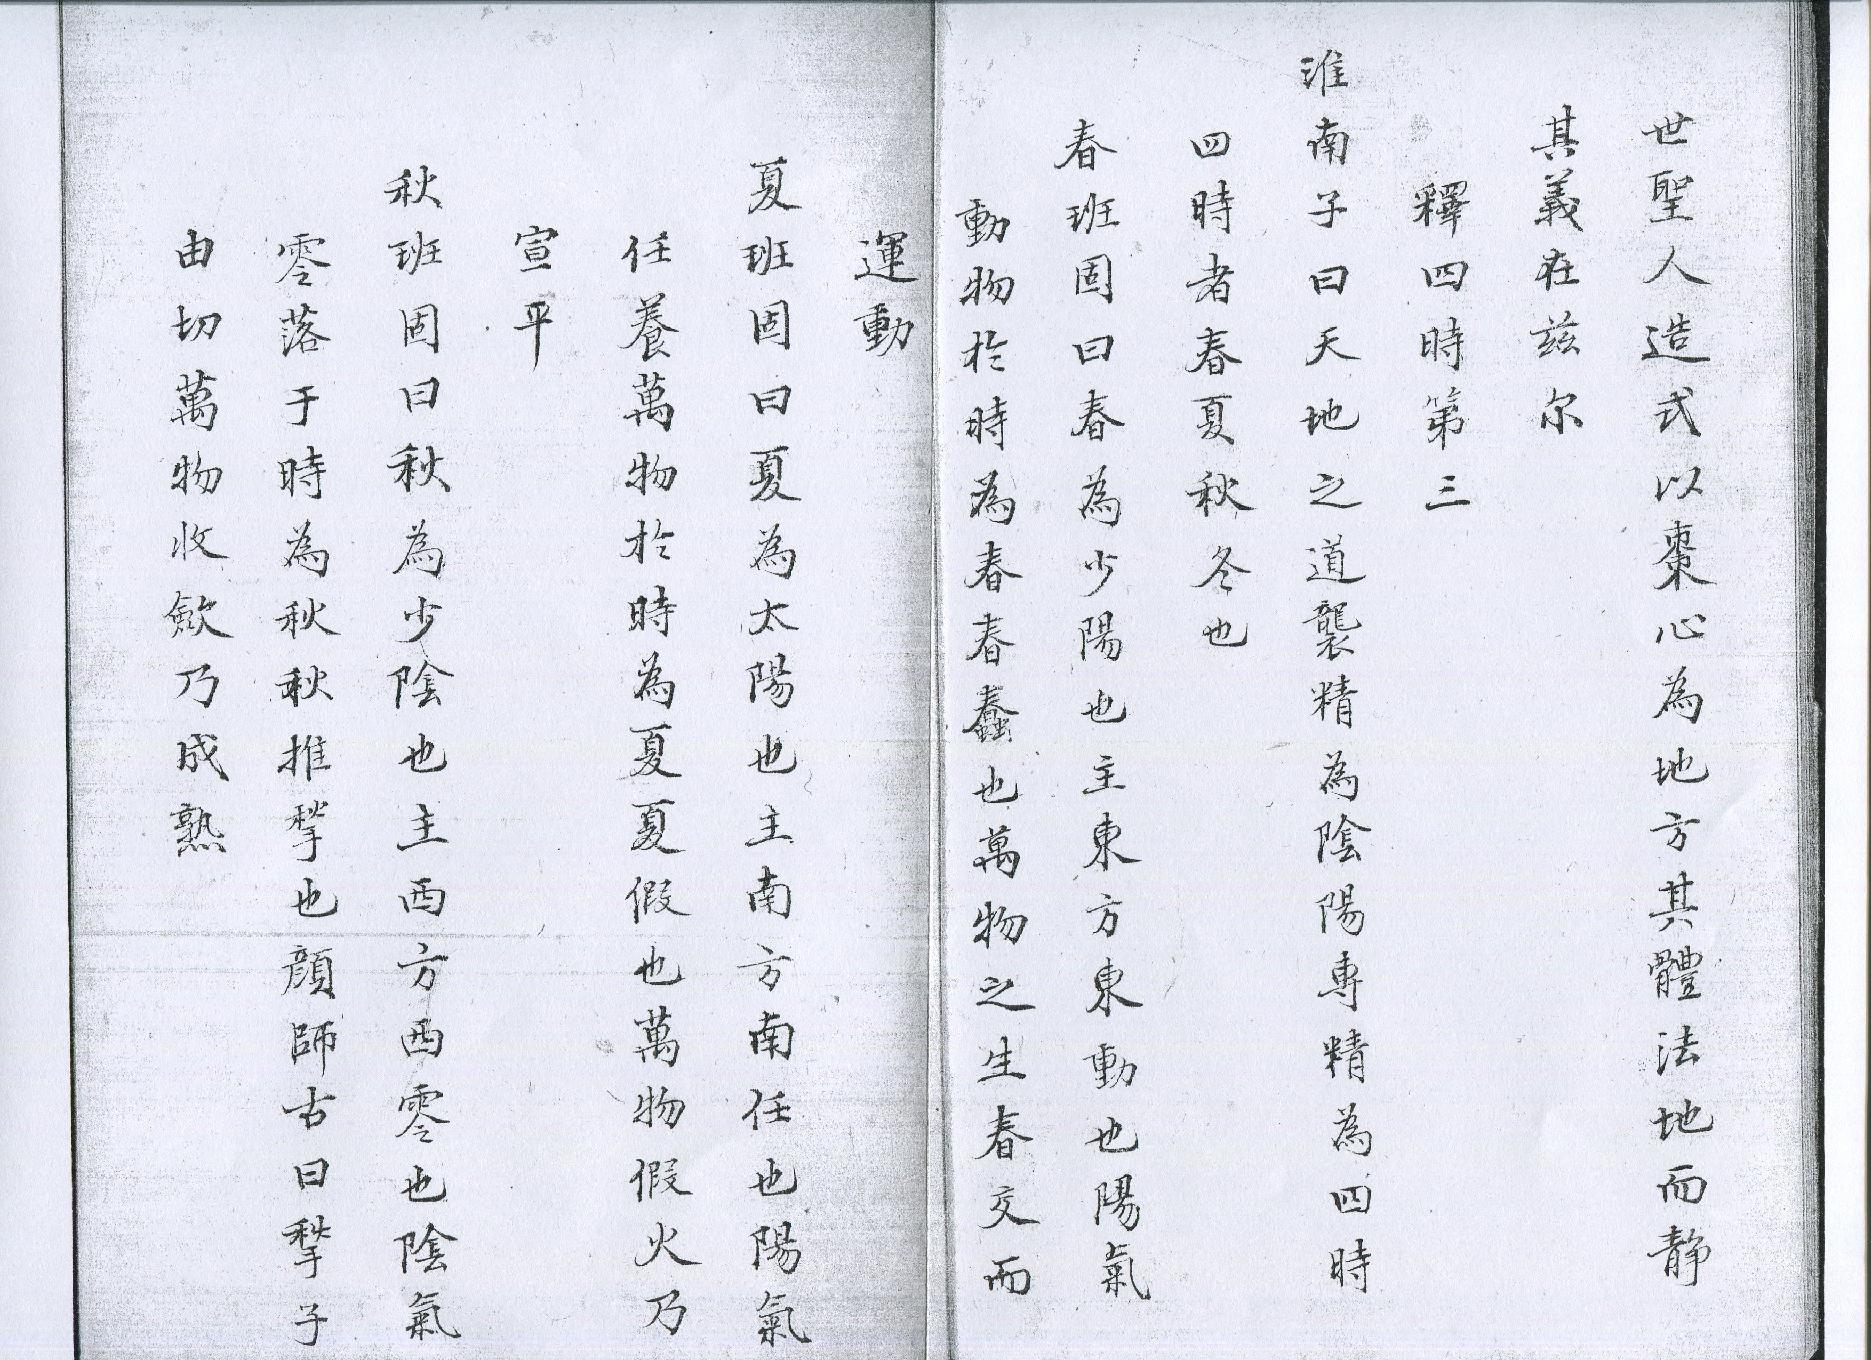 世聖人造式以棗心為地方其體法地而靜
其義在茲尔
釋四時第三
淮南子曰天地之道襲精為陰陽專精為四時
四時者春夏秋冬也
春班固曰春為少陽也主東方東動也陽氣
動物於時為春春蠢也萬物之生春交而
運動
夏班固曰夏為太陽也主南方南任也陽氣
任養萬物於時為夏夏假也萬物假火乃
宣平
秋班固曰秋為少陰也主西方西零也陰氣
零落于時為秋秋推揫也顔師古曰揫子
由切萬物收歛乃成熟